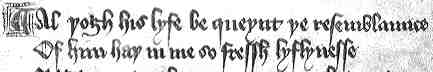 Al yogh his lyfe be queynt ye resemblaunce
Of him hay in me so fressh lyflynesse